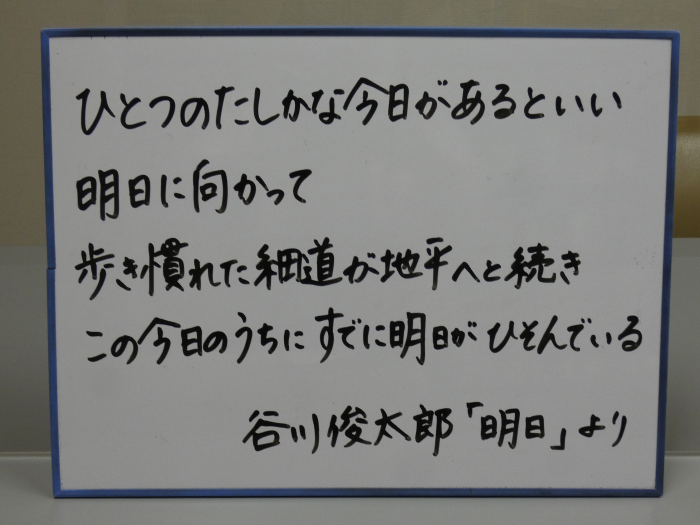 ひとつのたしかな今日があるといい
明日に向かって
歩き慣れた細道が地平へと続き
この今日のうちにすでに明日がひそんでいる
谷川俊太郎「明日」より